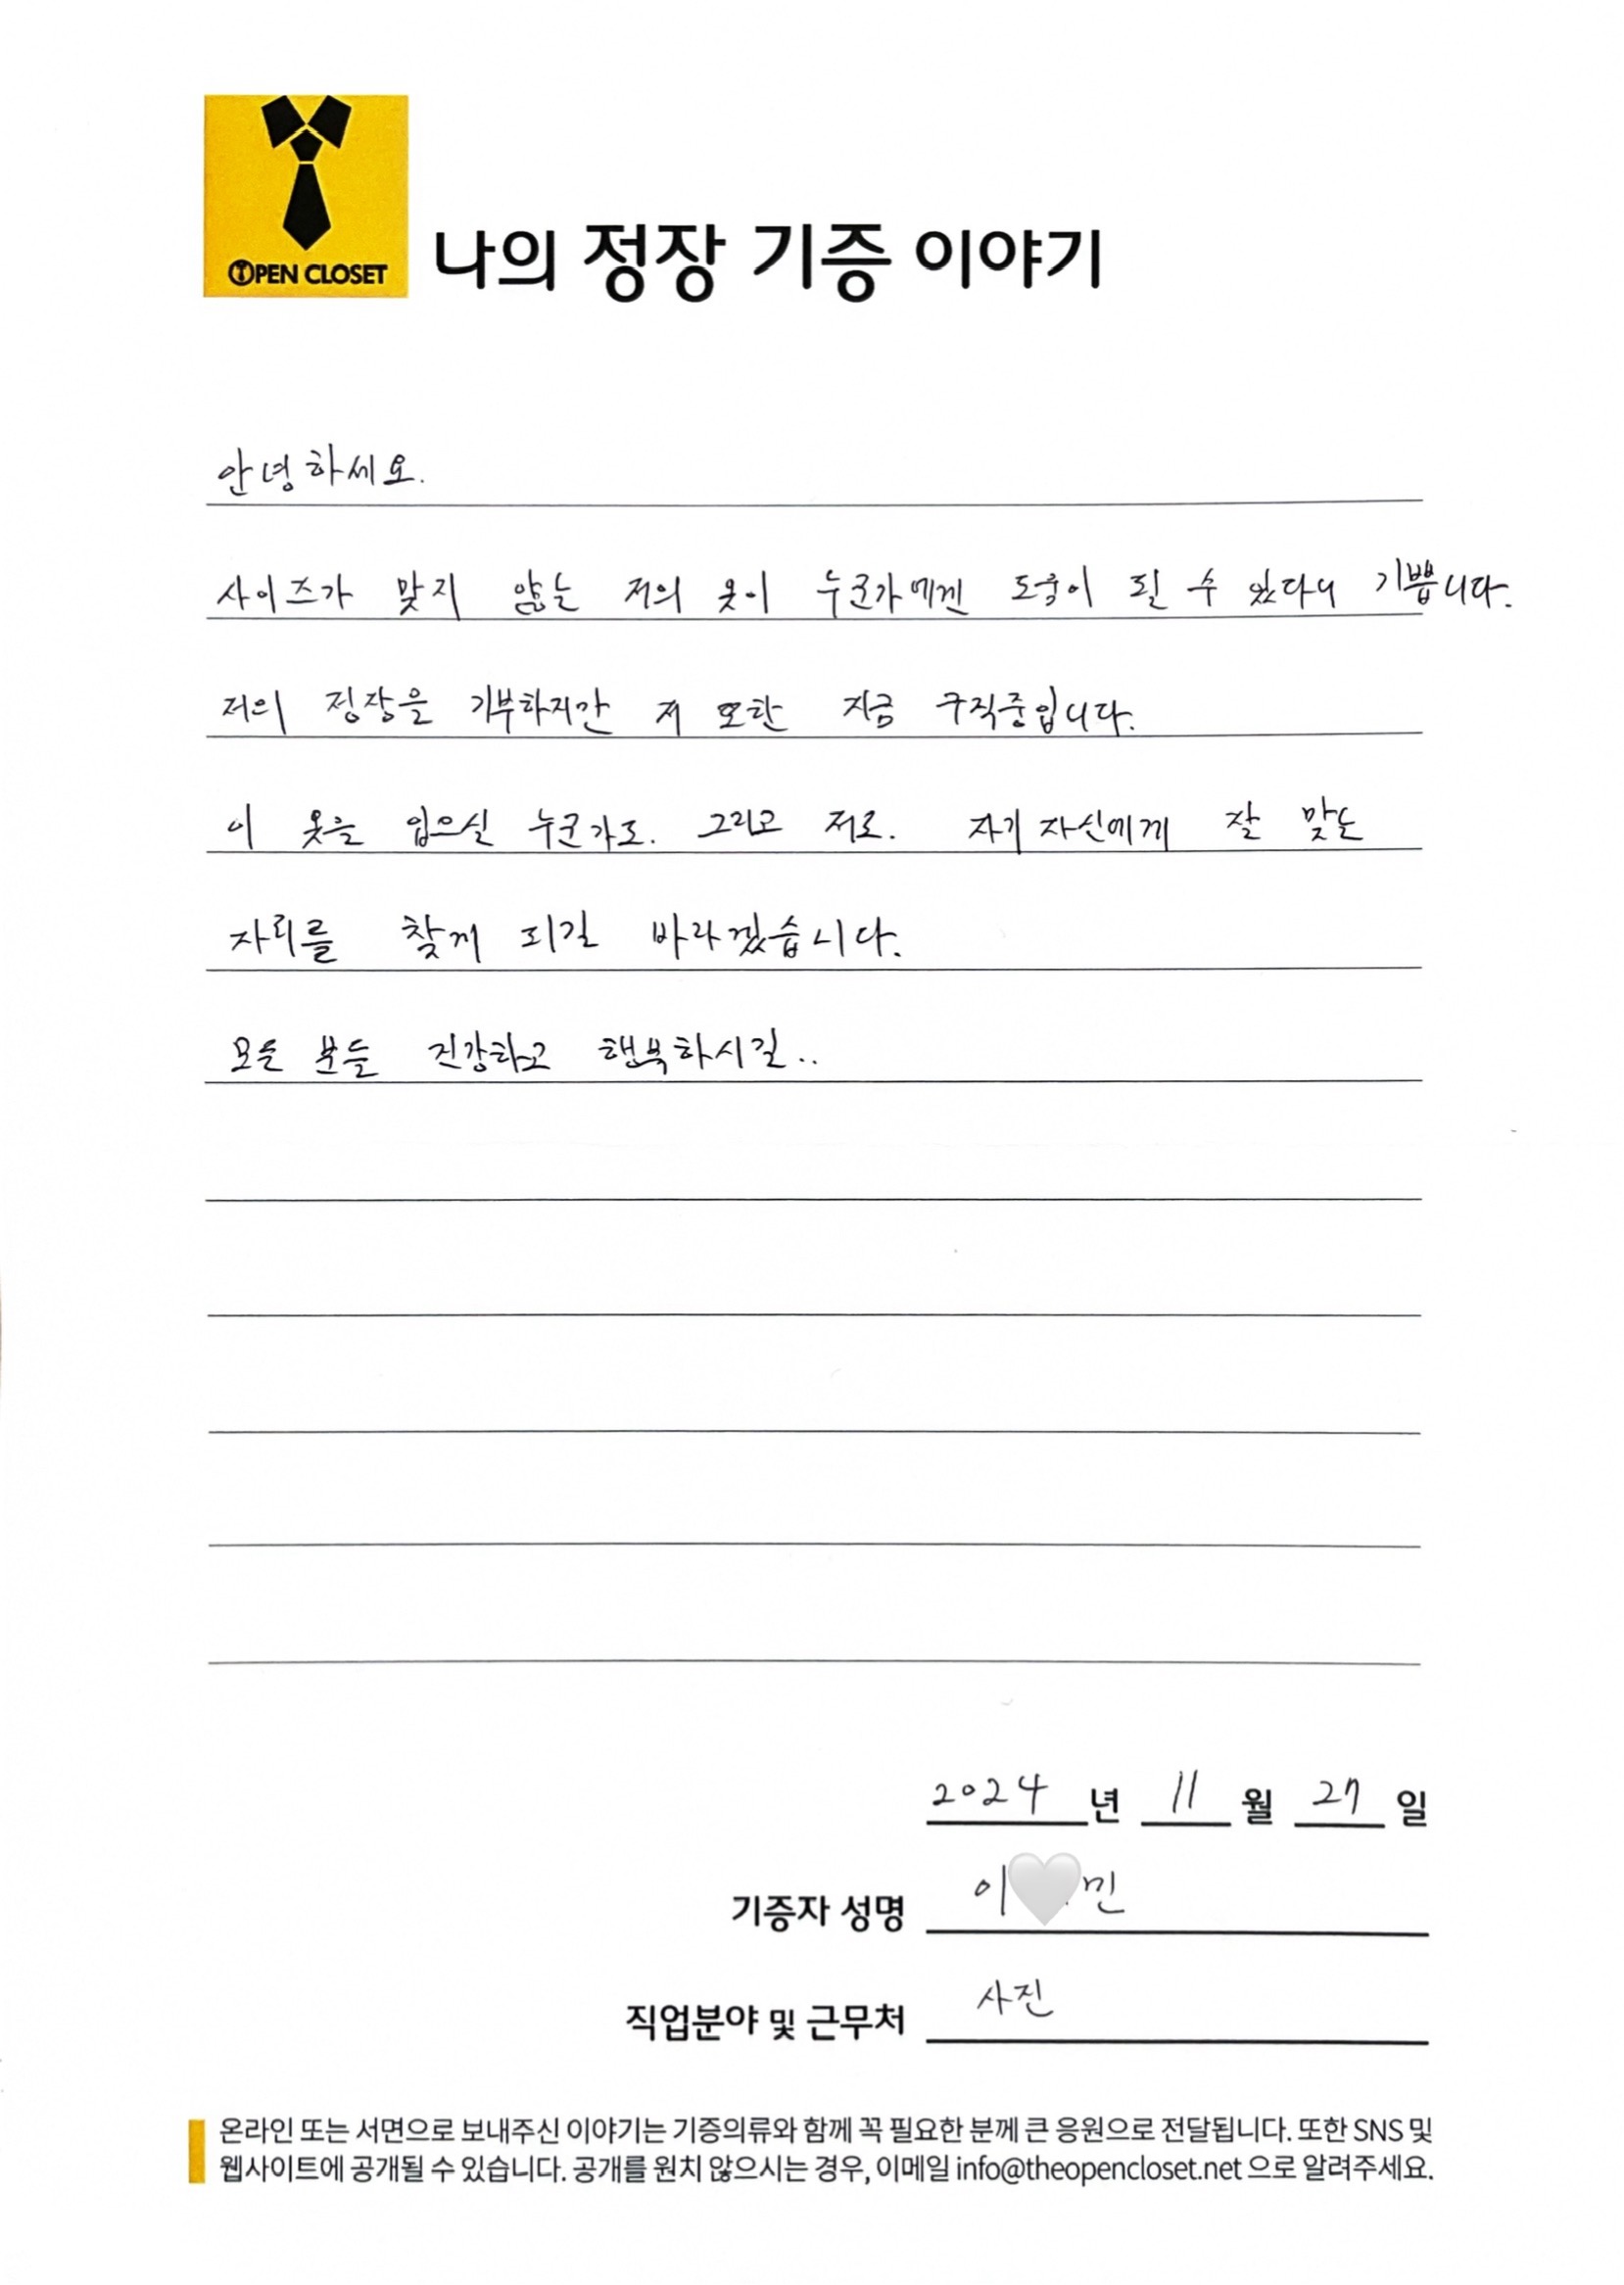 OPEN CLOSET
나의 정장 기증 이야기
안녕하세요.
사이즈가 맞지 않는 저의 옷이 누군가에겐 도움이 될 수 있다니 기쁩니다.
저의 정장을 기부하지만 저 또한 지금 구직중입니다.
이 옷을 입으실 누군가도. 그리고 저도. 자기 자신에게 잘 맞는
자리를 찾게 되길 바라겠습니다.
모든 분들 건강하고 행복하시길..
2024 년 11 월 27 일
기증자 성명 이 민
직업분야 및 근무처 사진
온라인 또는 서면으로 보내주신 이야기는 기증의류와 함께 꼭 필요한 분께 큰 응원으로 전달됩니다. 또한 SNS 및
웹사이트에 공개될 수 있습니다. 공개를 원치 않으시는 경우, 이메일 info@theopencloset.net 으로 알려주세요.